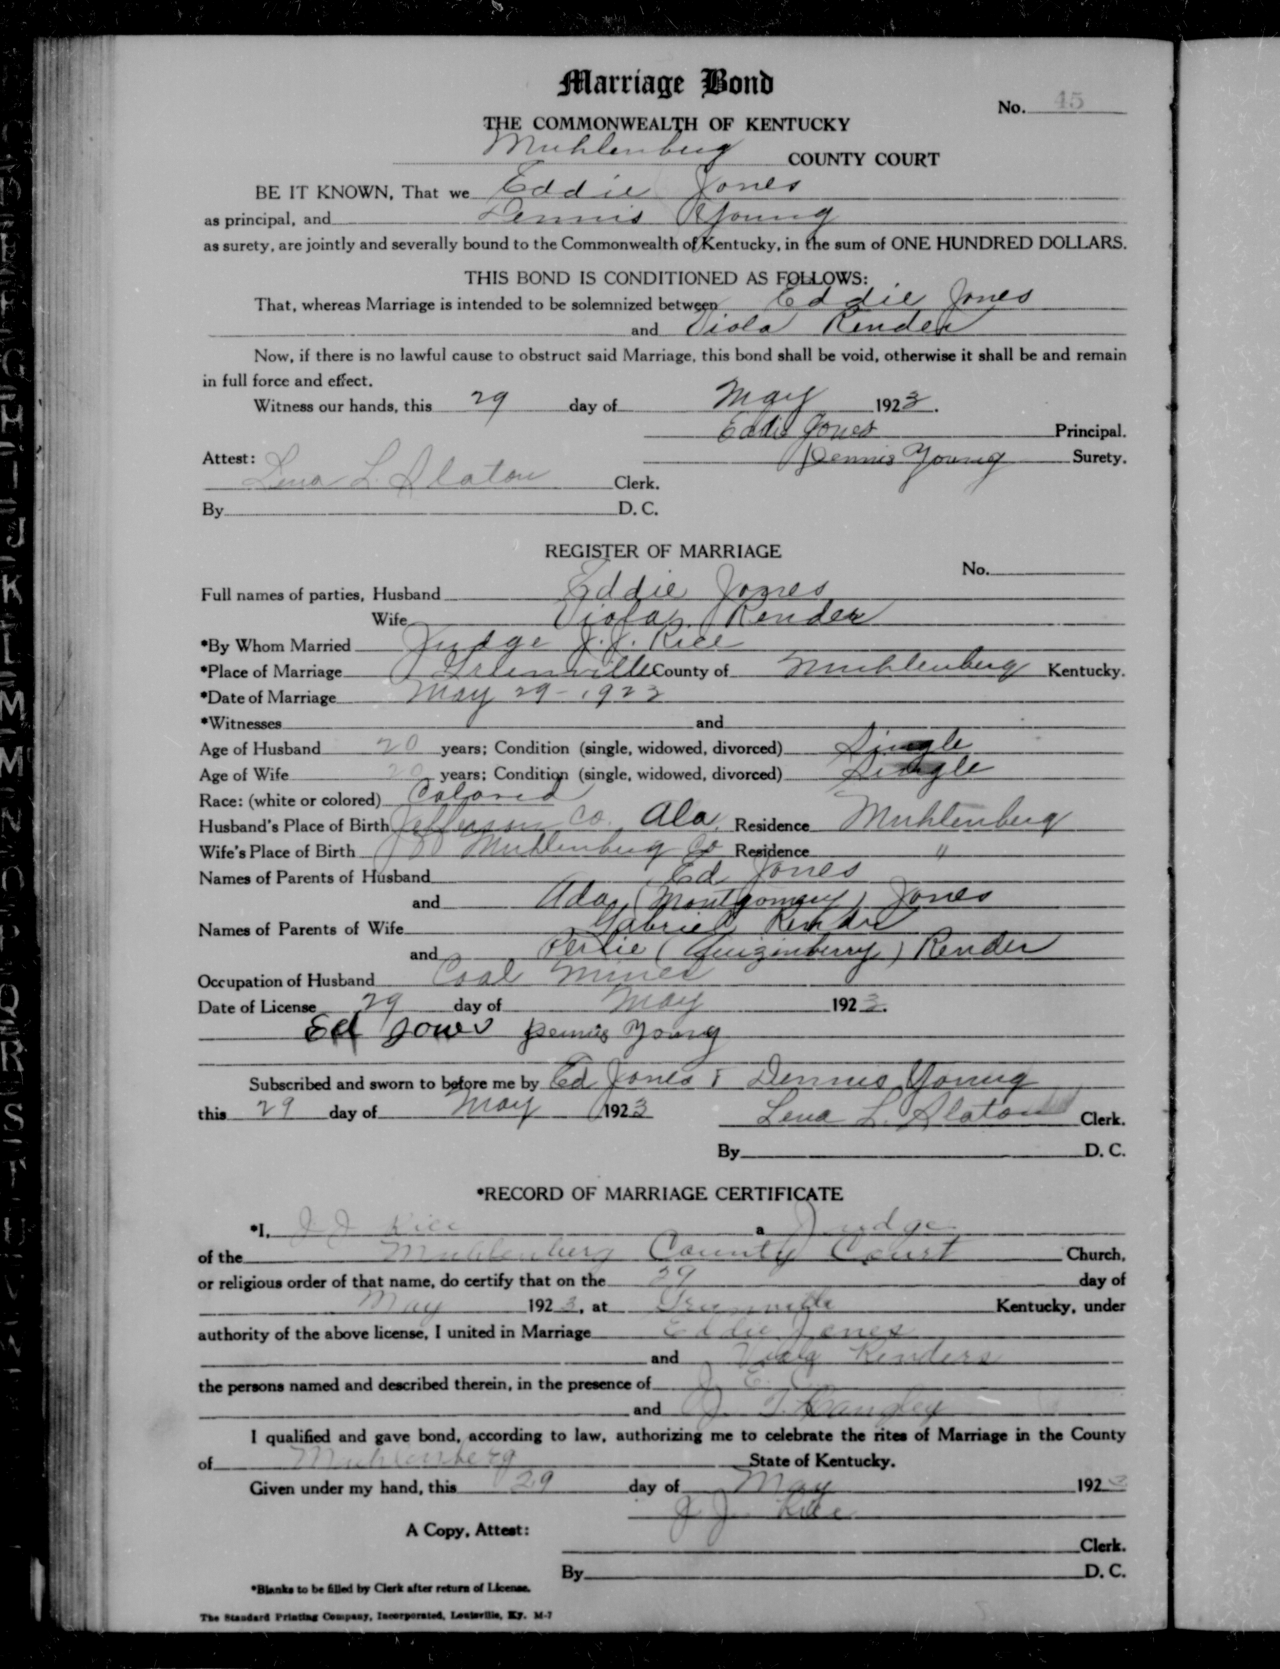 Marriage Bond
No. 45
THE COMMONWEALTH OF KENTUCKY
Muhlenberg COUNTY COURT
BE IT KNOWN, That we Eddie Jones
as principal, and Dennis Young
as surety, are jointly and severally bound to the Commonwealth of Kentucky, in the sum of ONE HUNDRED DOLLARS.
THIS BOND IS CONDITIONED AS FOLLOWS:
That, whereas Marriage is intended to be solemnized between Eddie Jones
and Viola Render
Now, if there is no lawful cause to obstruct said Marriage, this bond shall be void, otherwise it shall be and remain
in full force and effect.
Witness our hands, this 29 day of May 1923.
Eddie Jones Principal.
Attest: Dennis Young Surety.
Lena L. Slaton Clerk.
By D. C.
REGISTER OF MARRIAGE
No.
Full names of parties, Husband Eddie Jones
Wife Viola Render
*By Whom Married Judge J. J. Rice
*Place of Marriage Greenville County of Muhlenberg Kentucky.
*Date of Marriage May 29 - 1923
*Witnesses and
Age of Husband 20 years; Condition (single, widowed, divorced) Single
Age of Wife 20 years; Condition (single, widowed, divorced) Single
Race: (white or colored) Colored
Husband's Place of Birth Jefferson Co. Ala. Residence Muhlenberg
Wife's Place of Birth Muhlenberg Co Residence "
Names of Parents of Husband Ed Jones
and Ada (Montgomery) Jones
Names of Parents of Wife Gabriel Render
and Perlie (Quizenberry) Render
Occupation of Husband Coal Miner
Date of License 29 day of May 1923.
Ed Jones Dennis Young
Subscribed and sworn to before me by Ed Jones & Dennis Young
this 29 day of May 1923 Lena L. Slaton Clerk.
By D. C.
*RECORD OF MARRIAGE CERTIFICATE
*I, J J Rice a Judge
of the Muhlenberg County Court Church,
or religious order of that name, do certify that on the 29 day of
May 1923, at Greenville Kentucky, under
authority of the above license, I united in Marriage Eddie Jones
and Renders
the persons named and described therein, in the presence of J. E.
and J. T. Langley
I qualified and gave bond, according to law, authorizing me to celebrate the rites of Marriage in the County
of Muhlenberg State of Kentucky.
Given under my hand, this 29 day of May 1923
J J Rice
A Copy, Attest:
Clerk.
By D. C.
*Blanks to be filled by Clerk after return of License.
The Standard Printing Company, Incorporated, Louisville, Ky. M-7